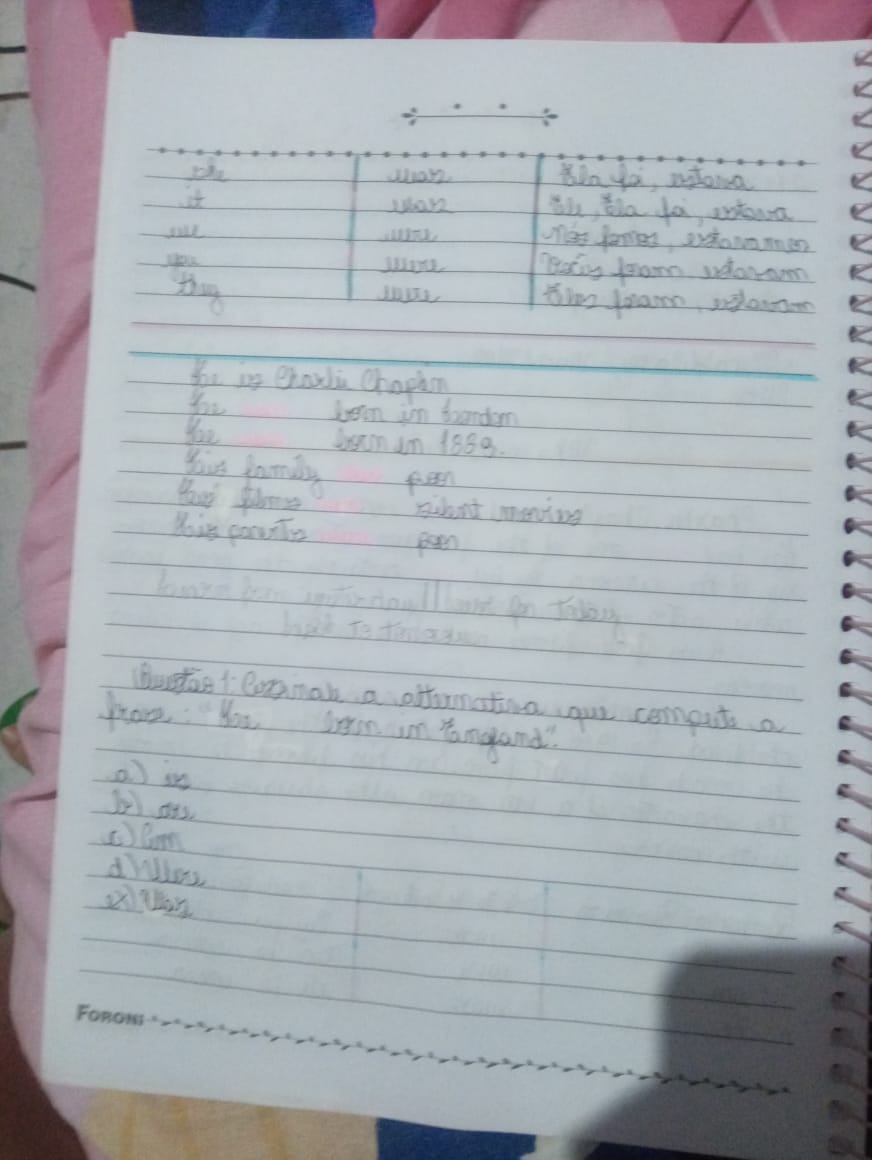 she was Ela foi, estava
it was Ele, Ela foi, estava
we were Nós fomos, estavamos
you were Vocês foram estavam
they were Eles foram, estavam
He is Charlie Chaplin
He born in London
He born in 1889.
His family poor
His films silent movies
His parents poor
Learn from yesterday live for Today
hope To Tomorrow
Questão 1: Assinale a alternativa que compete a
frase: "He born in England".
a) is
b) are
c) Am
d) Were
e) Was
FORONI